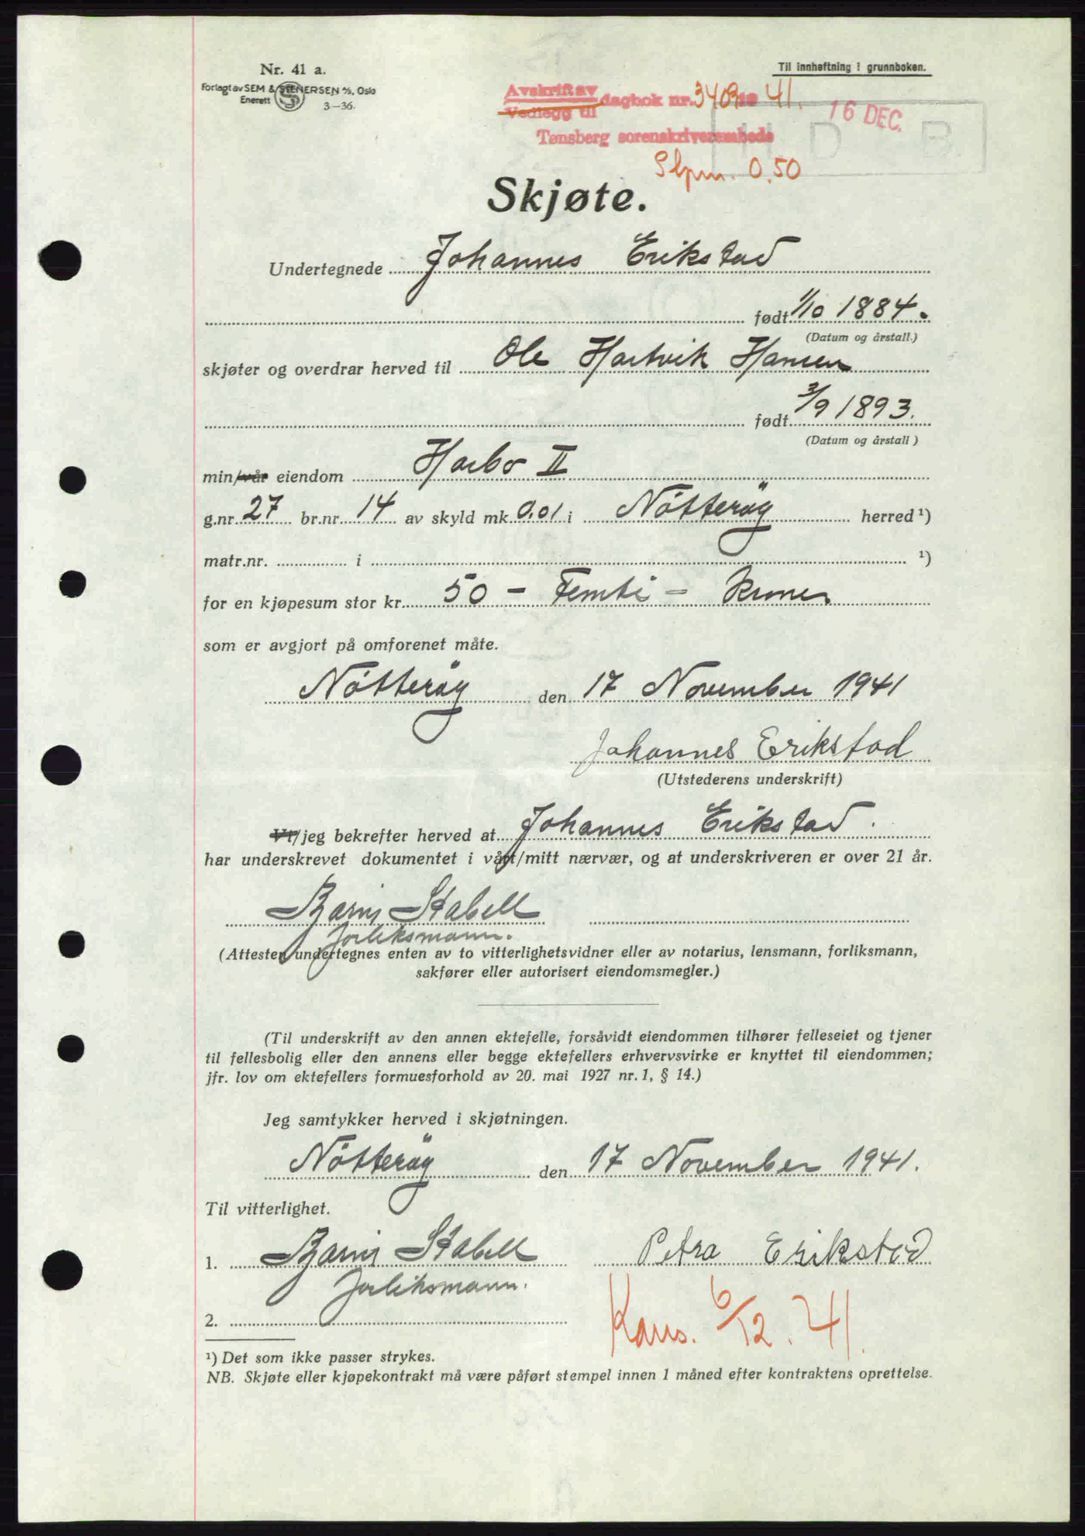 Nr. 41 a.
Forlagt av SEM & STENERSEN A/S, Oslo
Enerett 3-36.
Til innheftning i grunnboken.
Avskrift av
Vedlegg til dagbok nr. 3403 19 41.
Tønsberg sorenskriverembede
16 DEC.
Stpm. 0.50
Skjøte.
Undertegnede Johannes Erikstad
født 1/10 1884.
(Datum og årstall.)
skjøter og overdrar herved til Ole Hartvik Hansen
født 3/9 1893.
(Datum og årstall)
min/vår eiendom Harbo II
g.nr. 27 br.nr. 14 av skyld mk. 0.01 i Nötteröy herred ¹)
matr.nr. i ¹)
for en kjøpesum stor kr. 50 - Femti - Kroner
som er avgjort på omforenet måte.
Nötteröy den 17 November 1941
Johannes Erikstad
(Utstederens underskrift)
Vi/jeg bekrefter herved at Johannes Erikstad.
har underskrevet dokumentet i vårt/mitt nærvær, og at underskriveren er over 21 år.
Barni Stabell
forliksmann.
(Attesten undertegnes enten av to vitterlighetsvidner eller av notarius, lensmann, forliksmann,
sakfører eller autorisert eiendomsmegler.)
(Til underskrift av den annen ektefelle, forsåvidt eiendommen tilhører felleseiet og tjener
til fellesbolig eller den annens eller begge ektefellers erhvervsvirke er knyttet til eiendommen;
jfr. lov om ektefellers formuesforhold av 20. mai 1927 nr. 1, § 14.)
Jeg samtykker herved i skjøtningen.
Nötteröy den 17 November 1941.
Til vitterlighet.
1. Barni Stabell Petra Erikstad
forliksmann.
2. Kans. 6/12. 41.
¹) Det som ikke passer strykes.
NB. Skjøte eller kjøpekontrakt må være påført stempel innen 1 måned efter kontraktens oprettelse.